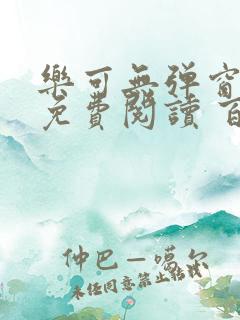 樂可無彈窗
免費閱讀 百
仲巴—噶尔
未经同意禁止转载